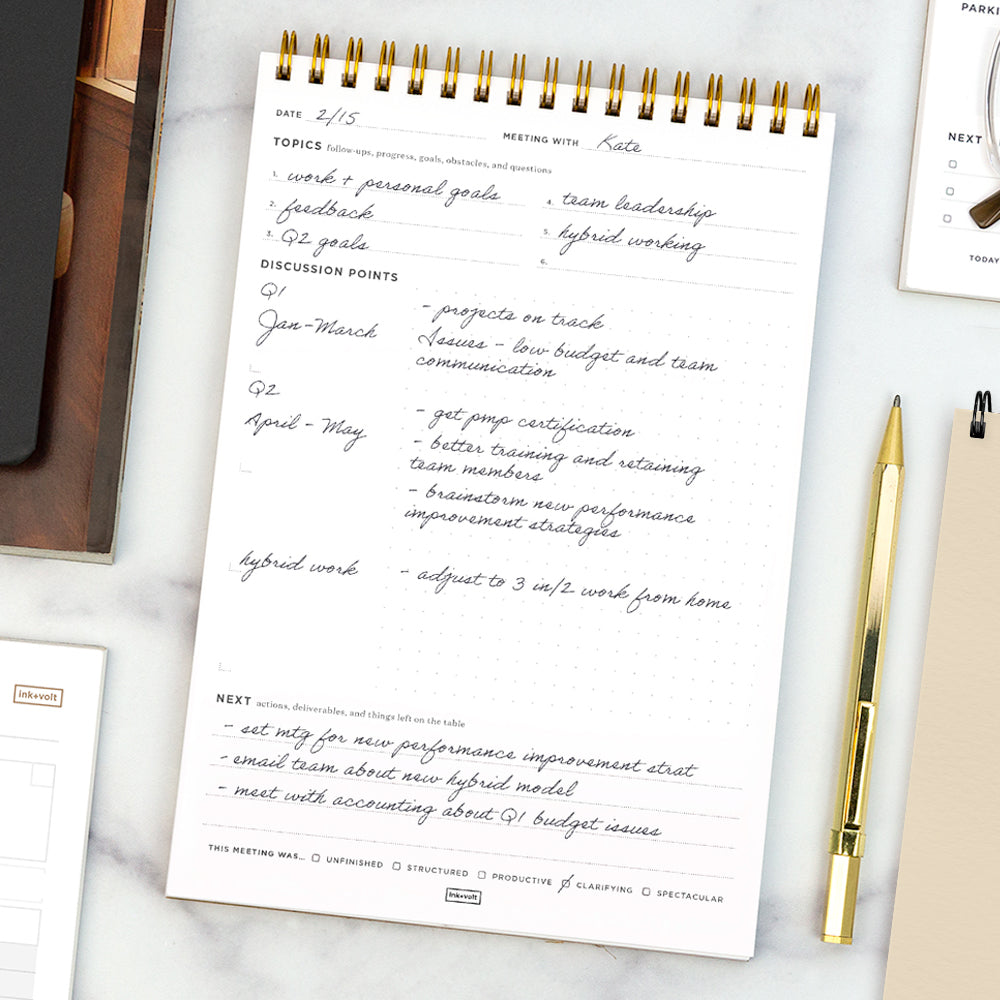 DATE 2/15
MEETING WITH Kate
TOPICS follow-ups, progress, goals, obstacles, and questions
1. work + personal goals
2. feedback
3. Q2 goals
4. team leadership
5. hybrid working
6.
DISCUSSION POINTS
Q1
Jan-March
- projects on track
Issues - low budget and team
communication
Q2
April - May
- get pmp certification
- better training and retaining
team members
- brainstorm new performance
improvement strategies
hybrid work
- adjust to 3 in/2 work from home
NEXT actions, deliverables, and things left on the table
- set mtg for new performance improvement strat
- email team about new hybrid model
- meet with accounting about Q1 budget issues
THIS MEETING WAS... UNFINISHED STRUCTURED PRODUCTIVE CLARIFYING SPECTACULAR
ink+volt
ink+volt
PARKI
NEXT
TODAY